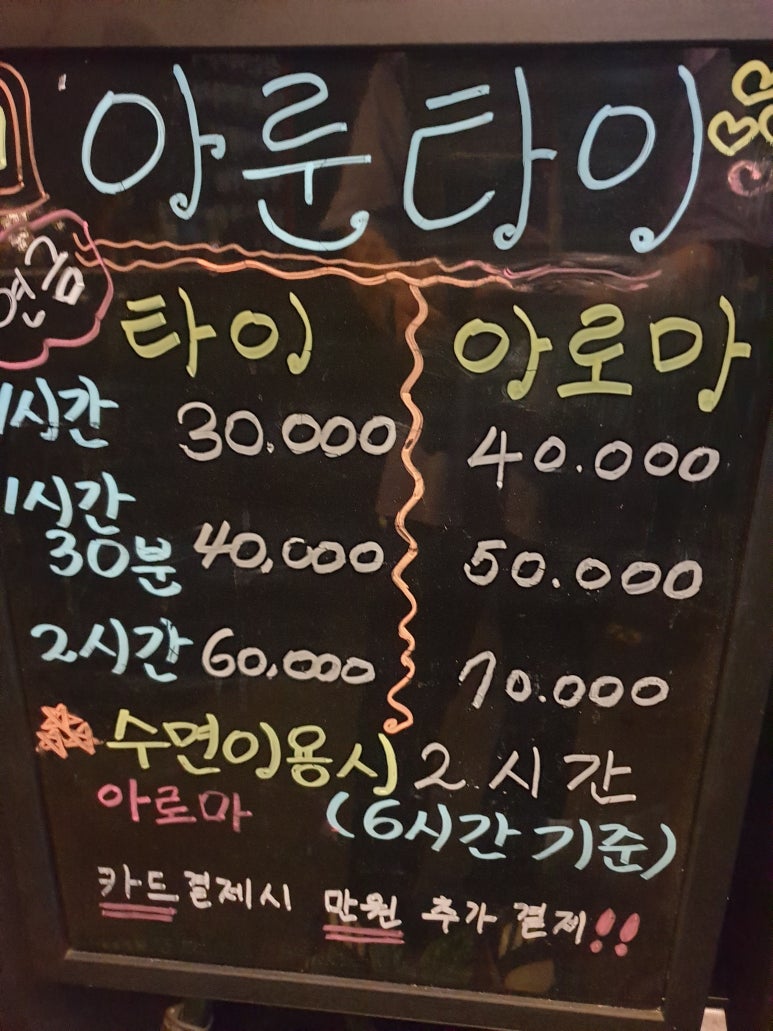 아룬타이
연금
타이 아로마
1시간 30.000 40.000
1시간
30분 40,000 50.000
2시간 60,000 70.000
수면이용시 2시간
아로마 (6시간 기준)
카드결제시 만원 추가 결제!!